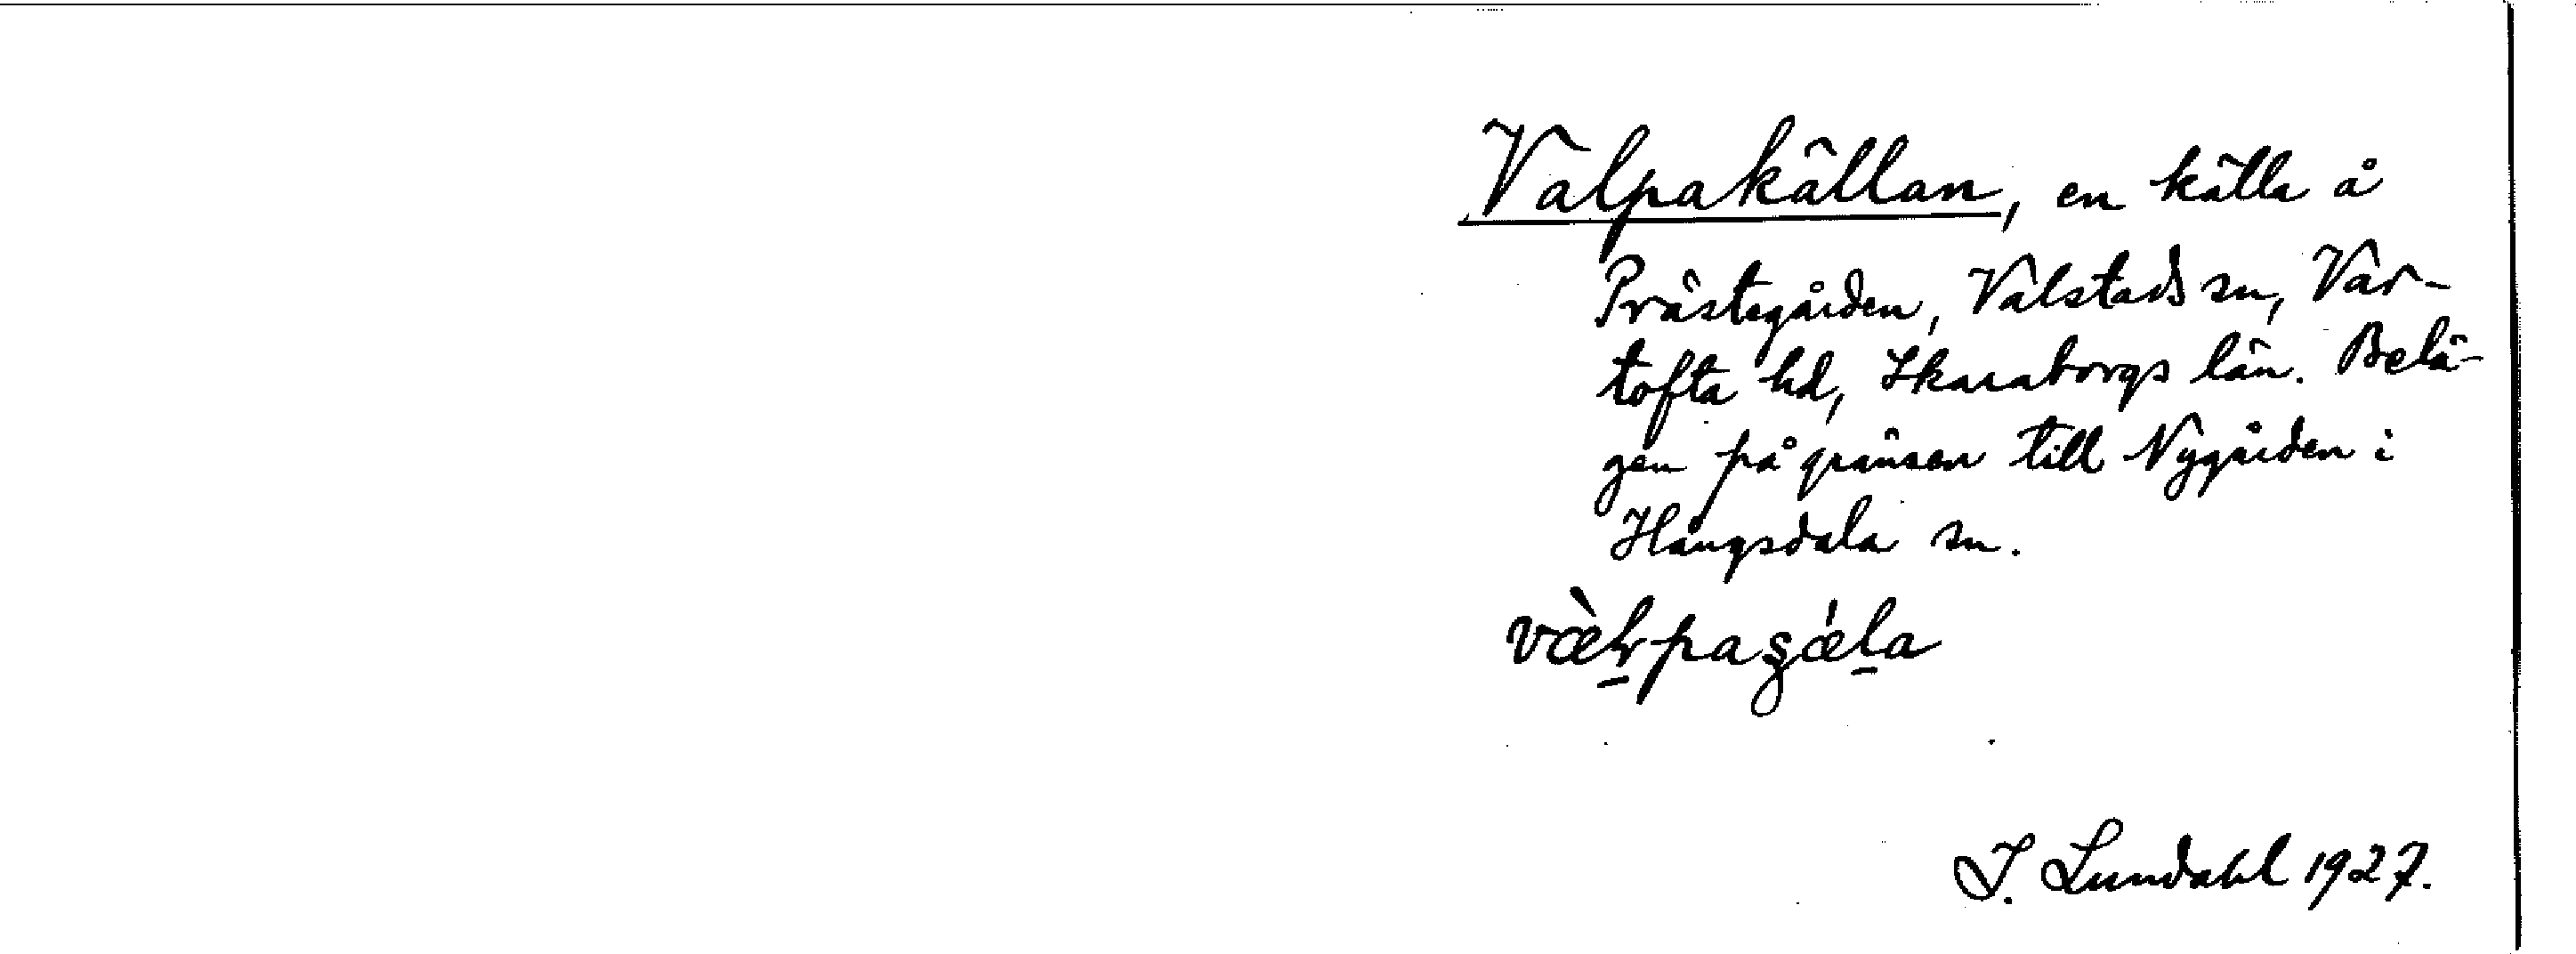 Valpakällan, en källa å
Prästegården, Valstads sn, Var-
tofta hd, Skaraborgs län. Belä-
gen på gränsen till Nygården i
Hångsdala sn.
I. Lundahl 1927.